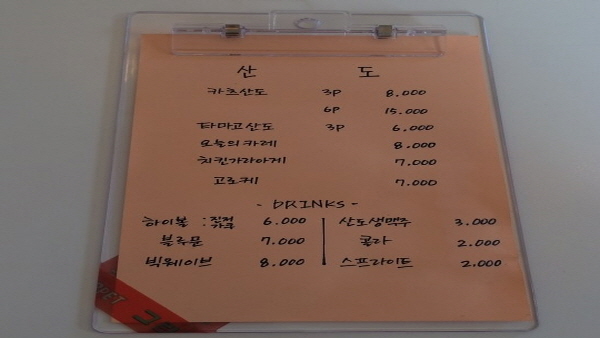 산 도
카츠산도 3p 8.000
6p 15.000
타마고산도 3p 6.000
오늘의카레 8.000
치킨가라아게 7.000
고로케 7.000
- DRINKS -
하이볼 : 진저 6.000 산도생맥주 3.000
블루문 7.000 콜라 2.000
빅웨이브 8.000 스프라이트 2.000